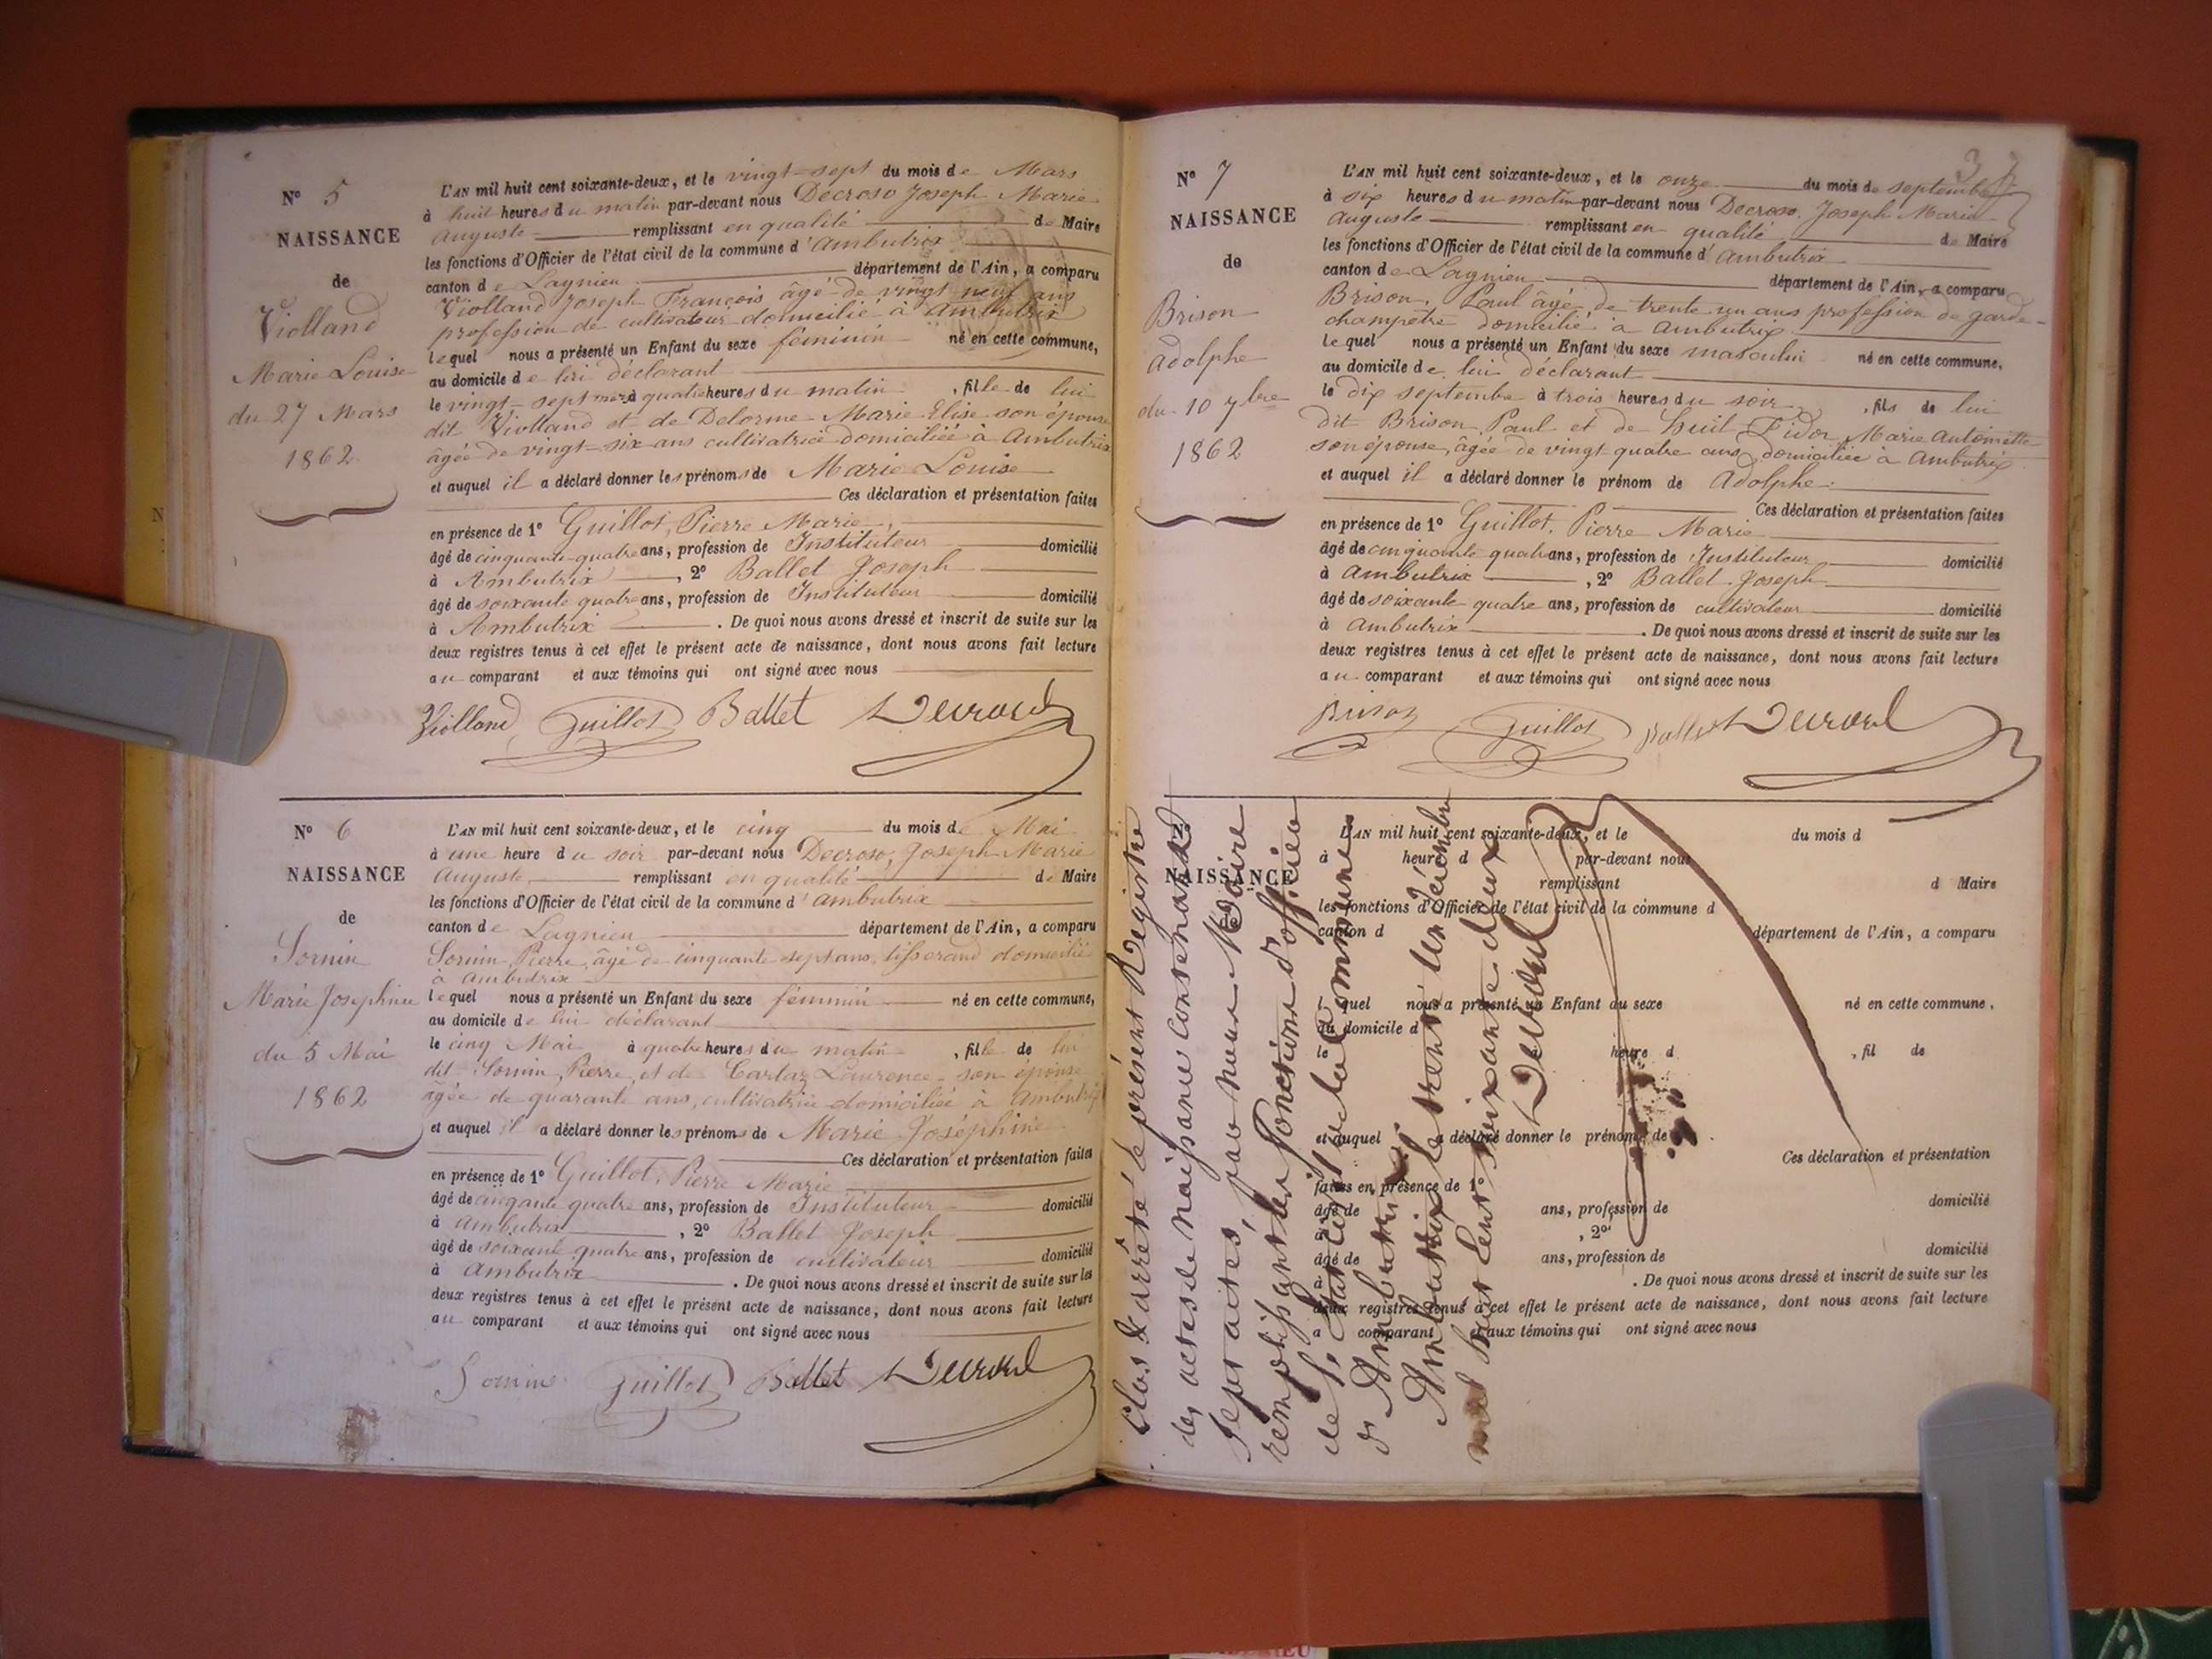 N° 5
NAISSANCE
de
Violland
Marie Louise
du 27 Mars
1862
L'AN mil huit cent soixante-deux, et le vingt-sept du mois de Mars
à huit heures du matin par-devant nous Decroso Joseph Marie
Auguste remplissant en qualité de Maire
les fonctions d'Officier de l'état civil de la commune d'Ambutrix
canton de Lagnieu département de l'Ain, a comparu
Violland Joseph François âgé de vingt neuf ans
profession de cultivateur domicilié à Ambutrix
lequel nous a présenté un Enfant du sexe féminin né en cette commune,
au domicile de lui déclarant
le vingt-sept mars à quatre heures du matin, fille de lui
dit Violland et de Delorme Marie Elise son épouse
âgée de vingt-six ans cultivatrice domiciliée à Ambutrix
et auquel il a déclaré donner les prénoms de Marie Louise
Ces déclaration et présentation faites
en présence de 1° Guillot, Pierre Marie,
âgé de cinquante-quatre ans, profession de Instituteur domicilié
à Ambutrix, 2° Ballet Joseph
âgé de soixante quatre ans, profession de Instituteur domicilié
à Ambutrix. De quoi nous avons dressé et inscrit de suite sur les
deux registres tenus à cet effet le présent acte de naissance, dont nous avons fait lecture
au comparant et aux témoins qui ont signé avec nous
Violland Guillot Ballet Decroso
N° 6
NAISSANCE
de
Sornin
Marie Josephine
du 5 Mai
1862
L'AN mil huit cent soixante-deux, et le cinq du mois de Mai
à une heure du soir par-devant nous Decroso, Joseph Marie
Auguste, remplissant en qualité de Maire
les fonctions d'Officier de l'état civil de la commune d'Ambutrix
canton de Lagnieu département de l'Ain, a comparu
Sornin Pierre, âgé de cinquante sept ans, tisserand domicilié
à Ambutrix
lequel nous a présenté un Enfant du sexe féminin né en cette commune,
au domicile de lui déclarant
le cinq Mai à quatre heures du matin, fille de lui
dit Sornin, Pierre, et de Cartaz Laurence son épouse
âgée de quarante ans, cultivatrice domiciliée à Ambutrix
et auquel il a déclaré donner les prénoms de Marie Joséphine
Ces déclaration et présentation faites
en présence de 1° Guillot, Pierre Marie
âgé de cinqante quatre ans, profession de Instituteur domicilié
à Ambutrix, 2° Ballet Joseph
âgé de soixante quatre ans, profession de cultivateur domicilié
à Ambutrix. De quoi nous avons dressé et inscrit de suite sur les
deux registres tenus à cet effet le présent acte de naissance, dont nous avons fait lecture
au comparant et aux témoins qui ont signé avec nous
Sornin Guillot Ballet Decroso
N° 7
NAISSANCE
de
Brison
Adolphe
du 10 7bre
1862
L'AN mil huit cent soixante-deux, et le onze du mois de septembre
à six heures du matin par-devant nous Decroso, Joseph Marie
Auguste remplissant en qualité de Maire
les fonctions d'Officier de l'état civil de la commune d'Ambutrix
canton de Lagnieu département de l'Ain, a comparu
Brison, Paul âgé de trente un ans profession de garde-
champêtre domicilié à Ambutrix
lequel nous a présenté un Enfant du sexe masculin né en cette commune,
au domicile de lui déclarant
le dix septembre à trois heures du soir, fils de lui
dit Brison Paul et de Marie Antoinette
son épouse, âgée de vingt quatre ans domiciliée à Ambutrix
et auquel il a déclaré donner le prénom de Adolphe
Ces déclaration et présentation faites
en présence de 1° Guillot, Pierre Marie
âgé de cinquante quatre ans, profession de Instituteur domicilié
à Ambutrix, 2° Ballet Joseph
âgé de soixante quatre ans, profession de cultivateur domicilié
à Ambutrix. De quoi nous avons dressé et inscrit de suite sur les
deux registres tenus à cet effet le présent acte de naissance, dont nous avons fait lecture
au comparant et aux témoins qui ont signé avec nous
Brison Guillot Ballet Decroso
N°
NAISSANCE
L'AN mil huit cent soixante-deux, et le du mois d
à heure d par-devant nous
remplissant d Maire
les fonctions d'Officier de l'état civil de la commune d
canton d département de l'Ain, a comparu
le quel nous a présenté un Enfant du sexe né en cette commune,
au domicile d
le heure d, fil de
et auquel a déclaré donner le prénom de
Ces déclaration et présentation
faites en présence de 1°
âgé de ans, profession de domicilié
à, 2°
âgé de ans, profession de domicilié
à. De quoi nous avons dressé et inscrit de suite sur les
deux registres tenus à cet effet le présent acte de naissance, dont nous avons fait lecture
a comparant et aux témoins qui ont signé avec nous
Clos & arrêté le présent Registre
des actes de naissance Contenant
Sept actes, par nous Maire
remplissant les fonctions d'officier
de l'état civil de la Commune
d'Ambutrix
Ambutrix le trente un Décembre
mil huit Cent soixante deux
Decroso